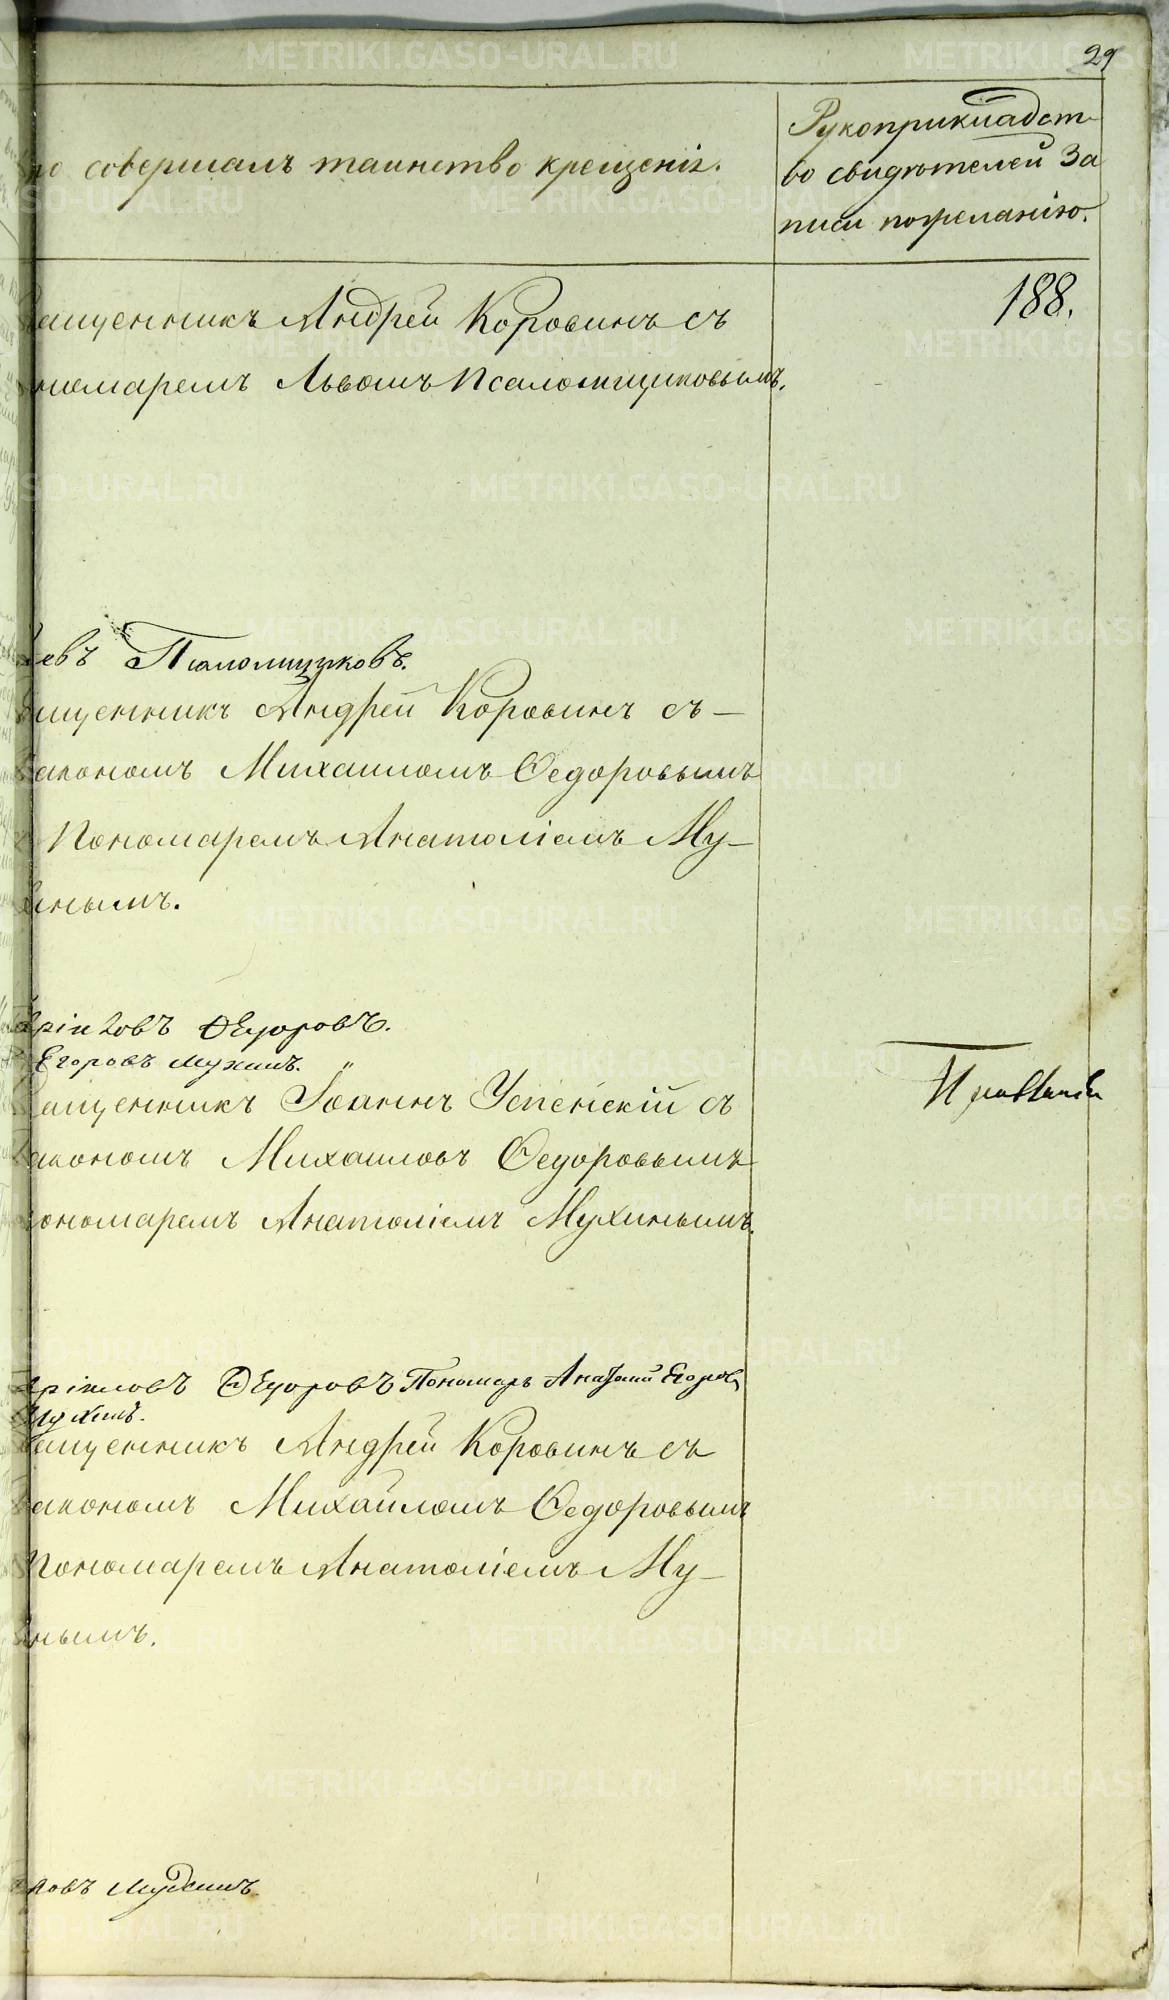 29
то совершалъ таинство крещенія.
Рукоприкладст-
во свидѣтелей За
писи пожеланію.
188.
ященникъ Андрей Коровинъ съ
номаремъ Львомъ Псаломщиковымъ.
евъ Псаломщиковъ.
ященникъ Андрей Коровинъ съ —
аконамъ Михаиломъ Ѳедоровымъ
Пономаремъ Анатоліемъ Му—
инымъ.
Ѳедоровъ.
Егоровъ Мухинъ.
ященникъ Іоаннъ Успенскій съ
аконамъ Михаиломъ Ѳедоровымъ
ономаремъ Анатоліемъ Мухинымъ.
Ѳедоровъ Пономарь Анатолій Егоровъ
Мухинъ.
ященникъ Андрей Коровинъ съ
аконамъ Михайломъ Ѳедоровымъ
Пономаремъ Анатоліемъ Му—
инымъ.
ровъ Мухинъ.
METRIKI.GASO-URAL.RU